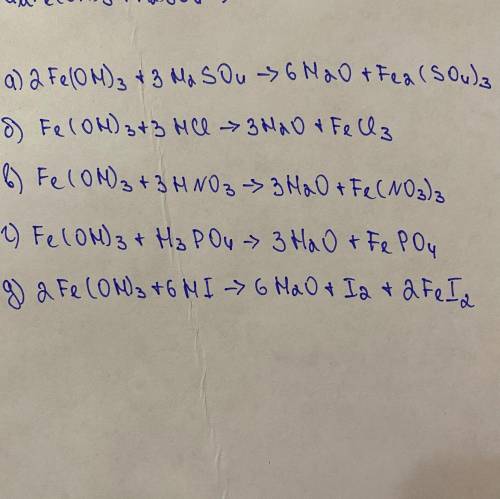 а) 2Fe(OH)3 + 3H2SO4 → 6H2O + Fe2(SO4)3
б) Fe(OH)3 + 3HCl → 3H2O + FeCl3
в) Fe(OH)3 + 3HNO3 → 3H2O + Fe(NO3)3
г) Fe(OH)3 + H3PO4 → 3H2O + FePO4
д) 2Fe(OH)3 + 6HI → 6H2O + I2 + 2FeI2